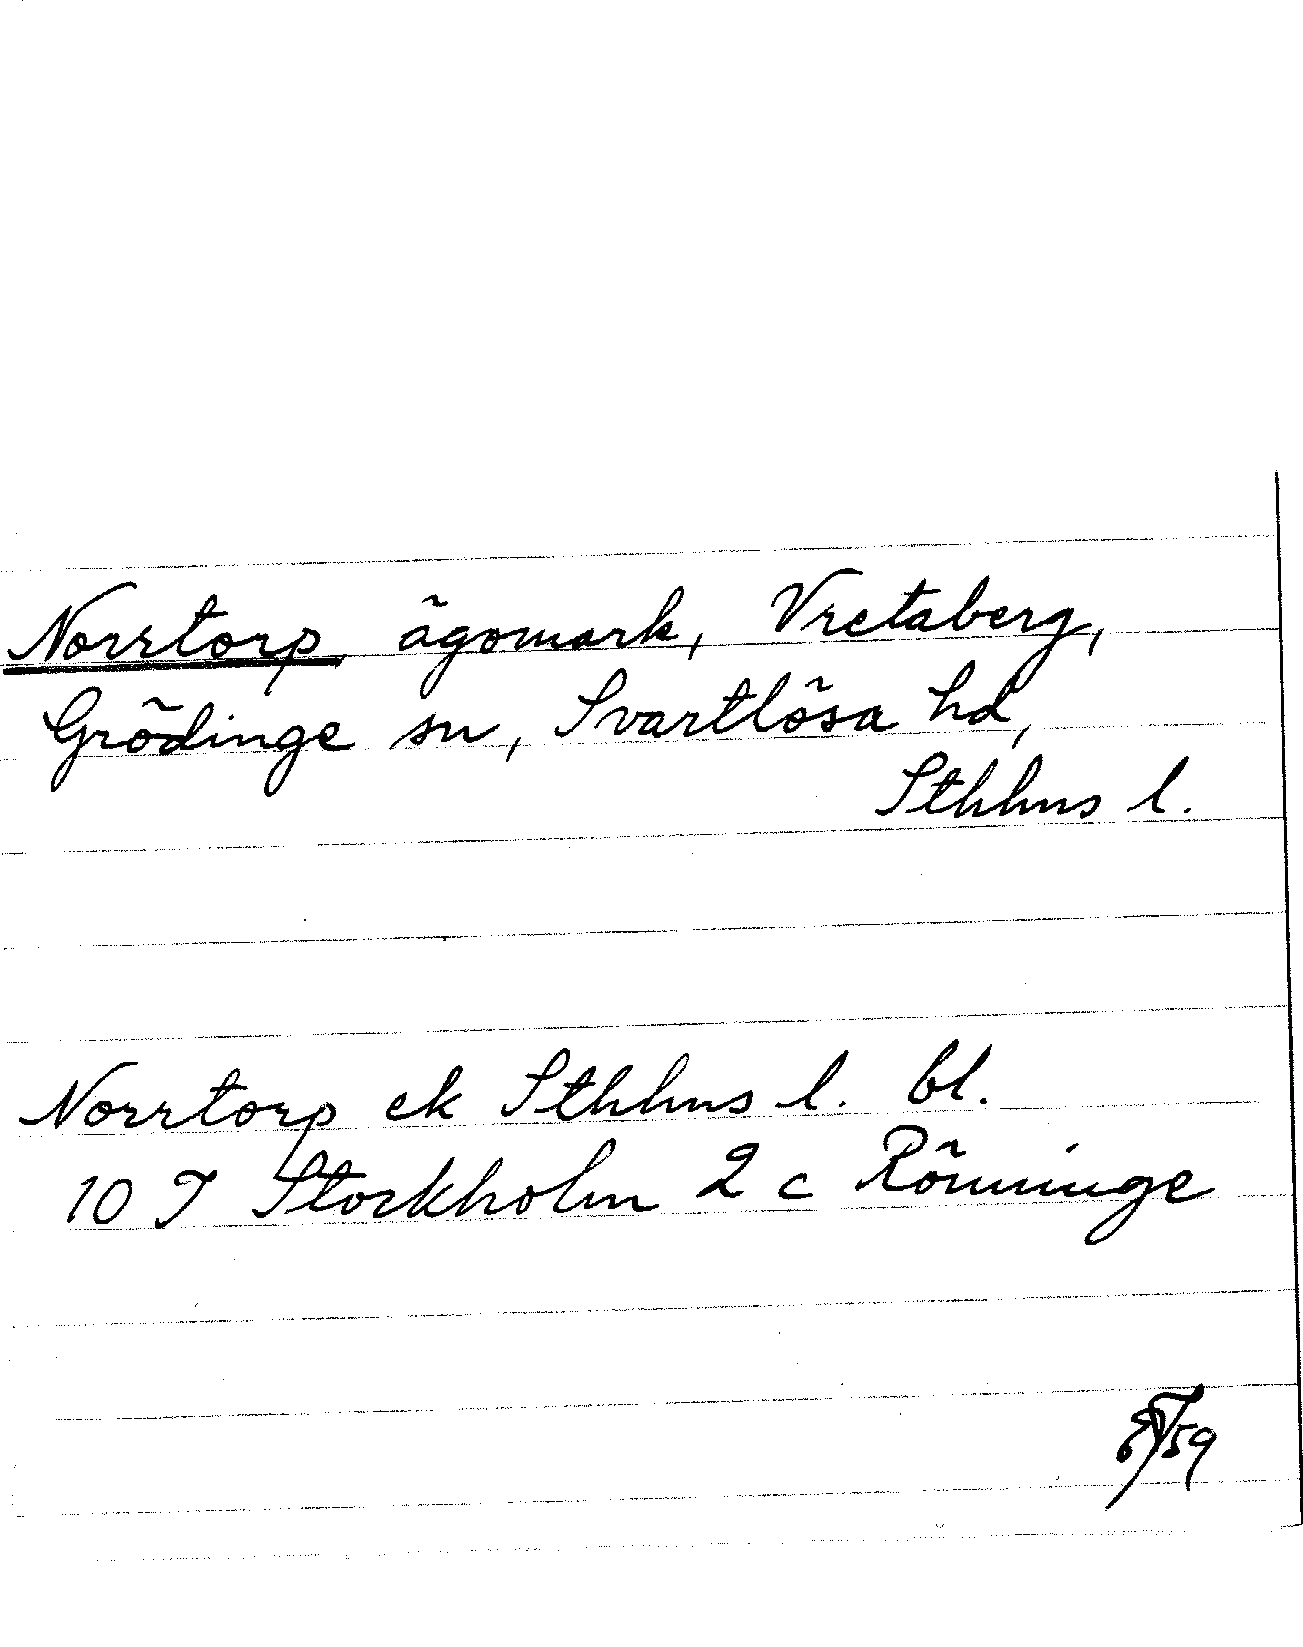 Norrtorp, ägomark, Vretaberg,
Grödinge sn, Svartlösa hd,
Sthlms l.
Norrtorp ek Sthlms l. bl.
10 I Stockholm 2 c Rönninge